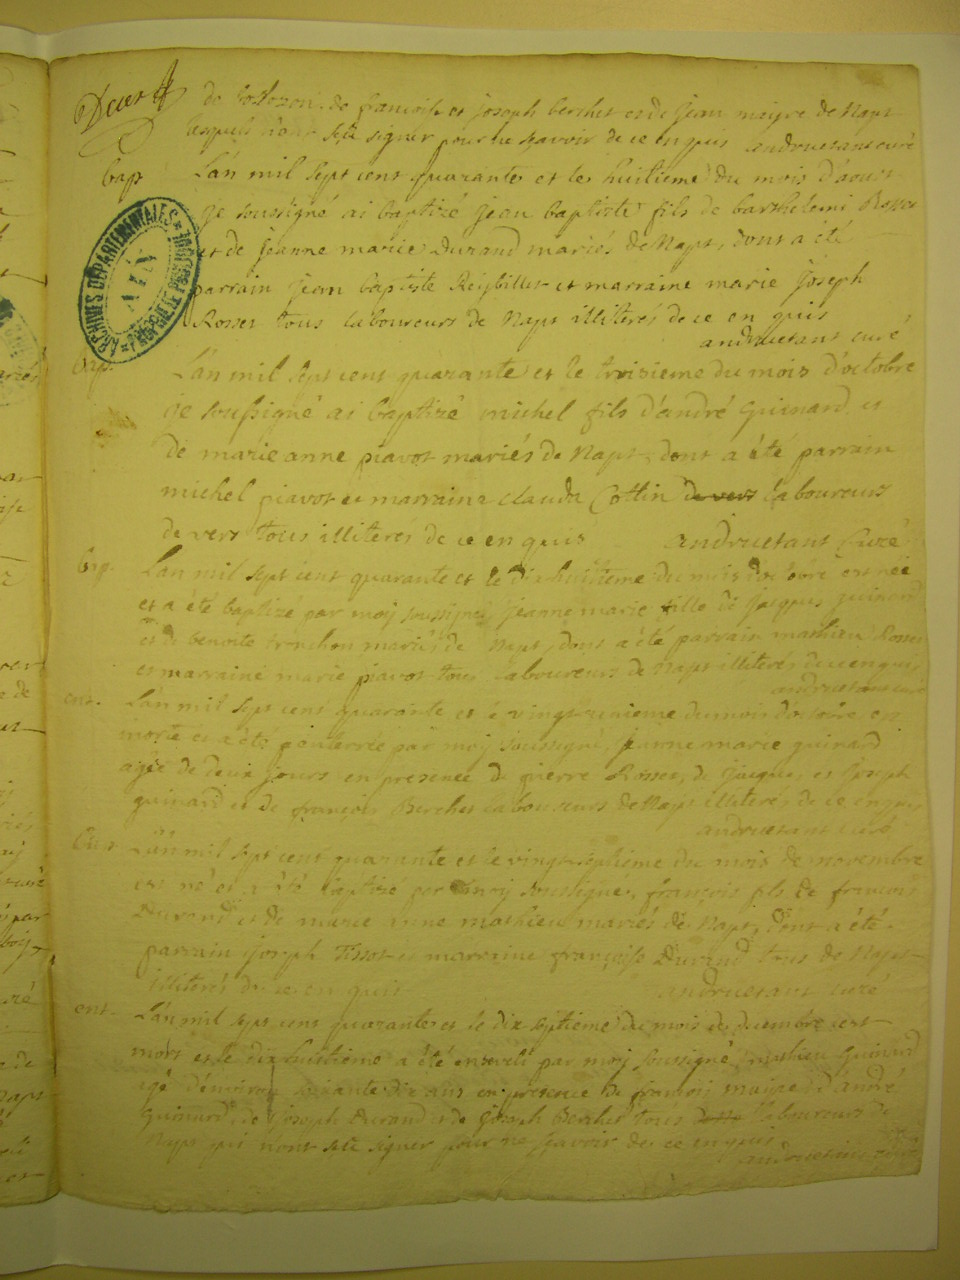 de françoise et joseph berchet et de jean maire de Napt
lesquels n'ont sçu signer pour ne scavoir de ce enquis andruetant curé
bap. L'an mil sept cent quarante et le huitieme du mois d'aoust
je soussigné ai baptizé jean baptiste fils de barthelemi Rosset
et de jeanne marie Durand mariés de Napt, dont a été
parrain jean baptiste Reybillet et marraine marie joseph
Rosset tous laboureurs de Napt illitérés de ce en quis
andruetant curé
ARCHIVES DÉPARTEMENTALES
AIN
bap. L'an mil sept cent quarante et le troisieme du mois d'octobre
je soussigné ai baptizé michel fils d'andré Guinard et
de marie anne piavot mariés de Napt, dont a été parrain
michel piavot et marraine clauda Cottin de vers laboureurs
de vers tous illitérés de ce en quis andruetant Curé
bap. L'an mil sept cent quarante et le dix huitieme du mois d'octobre est née
et a été baptizé par moy soussigné, jeanne marie fille de jacques guinard
et de benoite tronchon mariés de Napt, dont a été parrain mathieu Rosset
et marraine marie piavot tous laboureurs de Napt illitérés de ce enquis
andruetant curé
ent. L'an mil sept cent quarante et le vingt unieme du mois d'octobre est
morte et a été enterrée par moy soussigné, jeanne marie guinard
agée de deux jours en presence de pierre Rosset, de jacques et joseph
guinard et de françois Berchet laboureurs de Napt illitérés de ce enquis
andruetant curé
L'an mil sept cent quarante et le vingt septieme du mois de novembre
est né et a été baptizé par moy soussigné, françois fils de françois
Durand et de marie anne mathieu mariés de Napt, dont a été
parrain joseph Tissot et marraine françoise Durand tous de Napt
illitérés de ce en quis andruetant curé
ent. L'an mil sept cent quarante et le dix septieme du mois de decembre est
mort et le dix huitieme a été enseveli par moy soussigné, mathieu Guinard
agé d'environ soixante dix ans en presence de françois maire, d'andré
Guinard, de joseph Durand et de joseph Berchet tous laboureurs de
Napt qui n'ont sçu signer pour ne sçavoir de ce enquis
andruetant curé